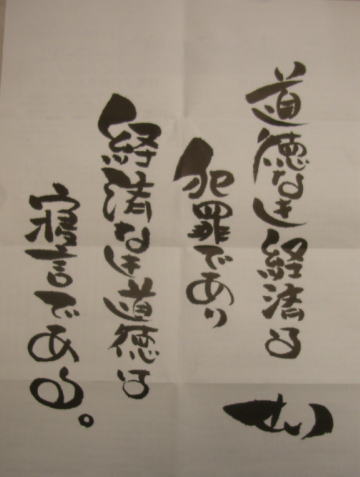 道徳なき経済は
犯罪であり
経済なき道徳は
寝言である。